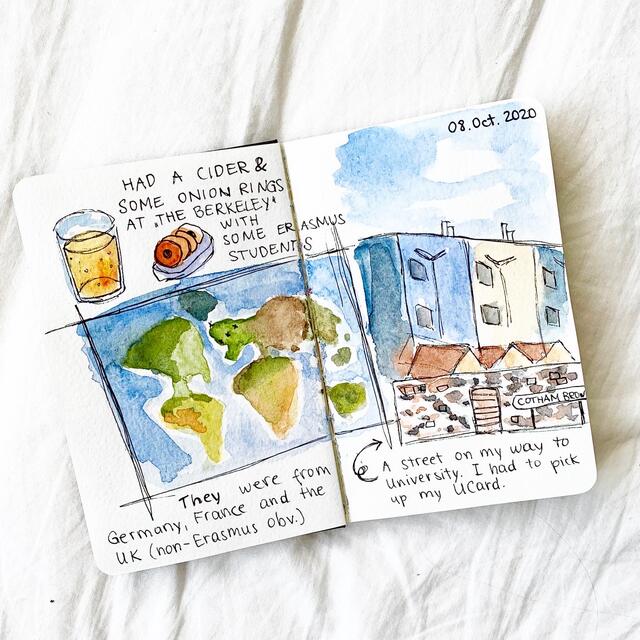 HAD A CIDER &
SOME ONION RINGS
AT „THE BERKELEY"
WITH
SOME ERASMUS
STUDENTS
They were from
Germany, France and the
UK (non-Erasmus obv.)
08.Oct. 2020
COTHAM BROW
A street on my way to
University. I had to pick
up my UCard.